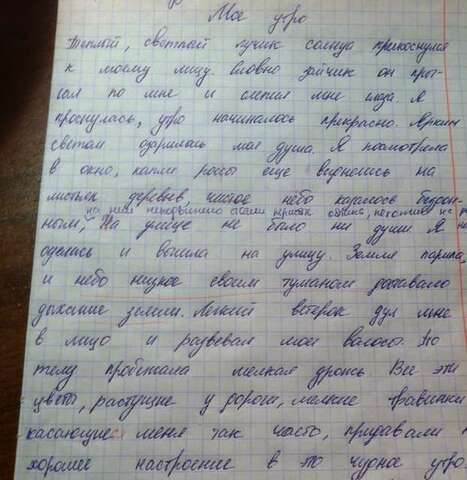 Мое утро
Теплый, светлый лучик солнца прикоснулся
к моему лицу. Словно зайчик он прог-
гал по мне и слепил мне глаза. Я
проснулась, утро начиналось прекрасно. Ярким
светом озарилась моя душа. Я посмотрела
в окно, капли росы еще виднелись на
листьях деревьев, чистое небо казалось бездон-
на нем неподвижно стаяли облака, непохожие на
ным, На улице не было ни души Я
оделась и вышла на улицу. Земля парила,
и небо низкое своим туманом доставало
дыхание земли. Легкий ветерок дул мне
в лицо и развевал мои волосы. По
телу пробегала мелкая дрожь. Все эти
цветы, растущие у дороги, мелкие травинки
касающиеся меня так часто, придавали
хорошее настроение в это чудное утро.